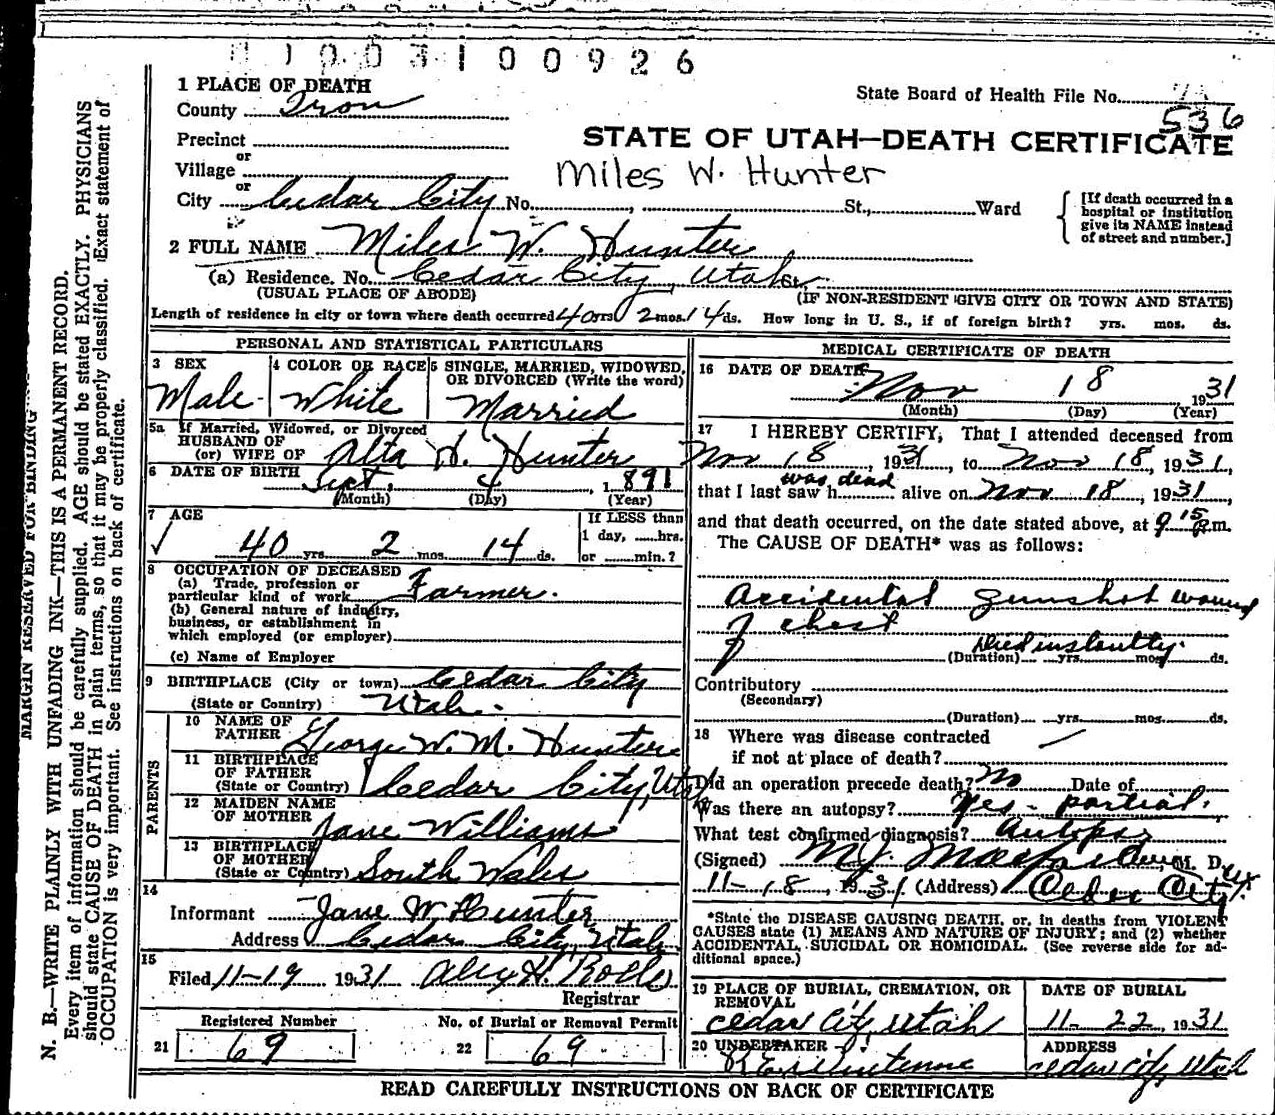 1003100926
1 PLACE OF DEATH
County Iron
State Board of Health File No.
536
Precinct
STATE OF UTAH—DEATH CERTIFICATE
or
Village
Miles W. Hunter
or
City Cedar City No. , St., Ward
[If death occurred in a hospital or institution give its NAME instead of street and number.]
2 FULL NAME Miles W. Hunter
(a) Residence. No. Cedar City, Utah
(USUAL PLACE OF ABODE) (IF NON-RESIDENT GIVE CITY OR TOWN AND STATE)
Length of residence in city or town where death occurred 40 yrs 2 mos. 14 ds. How long in U. S., if of foreign birth? yrs. mos. ds.
PERSONAL AND STATISTICAL PARTICULARS
3 SEX
Male
4 COLOR OR RACE
White
5 SINGLE, MARRIED, WIDOWED,
OR DIVORCED (Write the word)
Married
5a If Married, Widowed, or Divorced
HUSBAND OF
(or) WIFE OF Alta H. Hunter
6 DATE OF BIRTH Sept. 4, 1891
(Month) (Day) (Year)
7 AGE
40 yrs. 2 mos. 14 ds.
If LESS than
1 day, hrs.
or min.?
8 OCCUPATION OF DECEASED
(a) Trade, profession or
particular kind of work Farmer.
(b) General nature of industry,
business, or establishment in
which employed (or employer)
(c) Name of Employer
9 BIRTHPLACE (City or town) Cedar City
(State or Country) Utah.
PARENTS
10 NAME OF
FATHER George W. M. Hunter
11 BIRTHPLACE
OF FATHER
(State or Country) Cedar City, Utah
12 MAIDEN NAME
OF MOTHER Jane Williams
13 BIRTHPLACE
OF MOTHER
(State or Country) South Wales
14
Informant Jane W. Hunter
Address Cedar City, Utah
15
Filed 11-19 1931 Alex H. Rollo
Registrar
Registered Number
21 69
No. of Burial or Removal Permit
22 69
MEDICAL CERTIFICATE OF DEATH
16 DATE OF DEATH
Nov 18 1931
(Month) (Day) (Year)
17 I HEREBY CERTIFY, That I attended deceased from
Nov 18, 1931, to Nov 18, 1931,
was dead
that I last saw h alive on Nov 18, 1931,
and that death occurred, on the date stated above, at 9 15 P.m.
The CAUSE OF DEATH* was as follows:
Accidental gunshot wound
of chest
Died instantly.
(Duration) yrs. mos. ds.
Contributory
(Secondary)
(Duration) yrs. mos. ds.
18 Where was disease contracted
if not at place of death?
Did an operation precede death? No Date of
Was there an autopsy? Yes - partial.
What test confirmed diagnosis? Autopsy
(Signed) M. J. Macfarlane, M. D.
11-18, 1931 (Address) Cedar City Ut.
*State the DISEASE CAUSING DEATH, or, in deaths from VIOLENT
CAUSES state (1) MEANS AND NATURE OF INJURY; and (2) whether
ACCIDENTAL, SUICIDAL OR HOMICIDAL. (See reverse side for ad-
ditional space.)
19 PLACE OF BURIAL, CREMATION, OR
REMOVAL
Cedar City, Utah
DATE OF BURIAL
11-22, 1931
20 UNDERTAKER
ADDRESS
Cedar City, Utah
READ CAREFULLY INSTRUCTIONS ON BACK OF CERTIFICATE
MARGIN RESERVED FOR BINDING
N. B.—WRITE PLAINLY WITH UNFADING INK—THIS IS A PERMANENT RECORD.
Every item of information should be carefully supplied. AGE should be stated EXACTLY. PHYSICIANS
should state CAUSE OF DEATH in plain terms, so that it may be properly classified. Exact statement of
OCCUPATION is very important. See instructions on back of certificate.